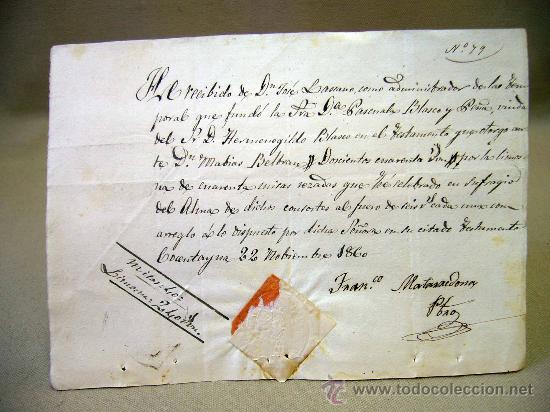 Nº 79
He recibido de Dn José Lassano, como administrador de las tem
poral que fundó la Sra Da Pascuala Blasco y Peña, viuda
del Sr D. Hermenegildo Blasco en el testamento que otorgo an
te Dn Mabias Beltran Doscientos cuarenta por la limos
na de cuarenta misas rezadas que hé celebrado en sufragio
del Alma de dichos consortes al fuero de seis rs cada una con
arreglo á lo dispuesto por dicha Señora en su citado testamento
Cocentayna 22 Nobiembre 1860
Misas
Limosna
Fran.co Mataredona
Pbro
www.todocoleccion.net